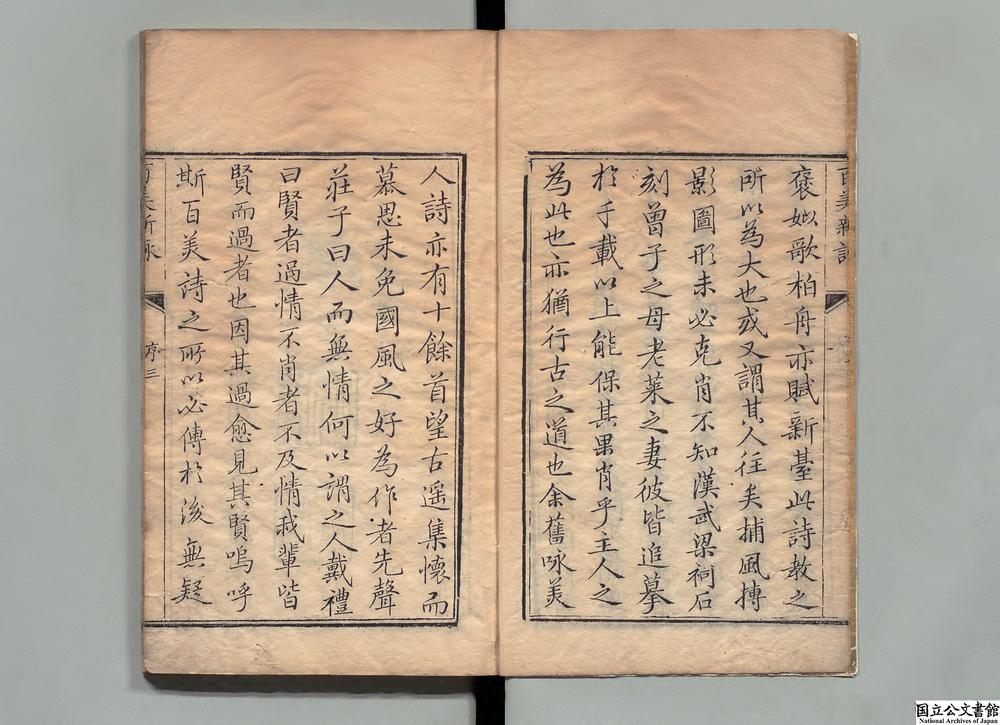 百美新詠
褒姒歌柏舟亦賦新臺此詩教之
所以為大也或又謂其人徃矣捕風搏
影圖形未必克肖不知漢武梁祠石
刻曾子之母老萊之妻彼皆追摹
於千載以上能保其果肖乎主人之
為此也亦猶行古之道也余舊咏美
人詩亦有十餘首望古遥集懷而
慕思未免國風之好為作者先聲
莊子曰人而無情何以謂之人戴禮
曰賢者過情不肖者不及情我輩皆
賢而過者也因其過愈見其賢嗚呼
斯百美詩之所以必傳於後無疑
百美新詠
序三
国立公文書館
National Archives of Japan